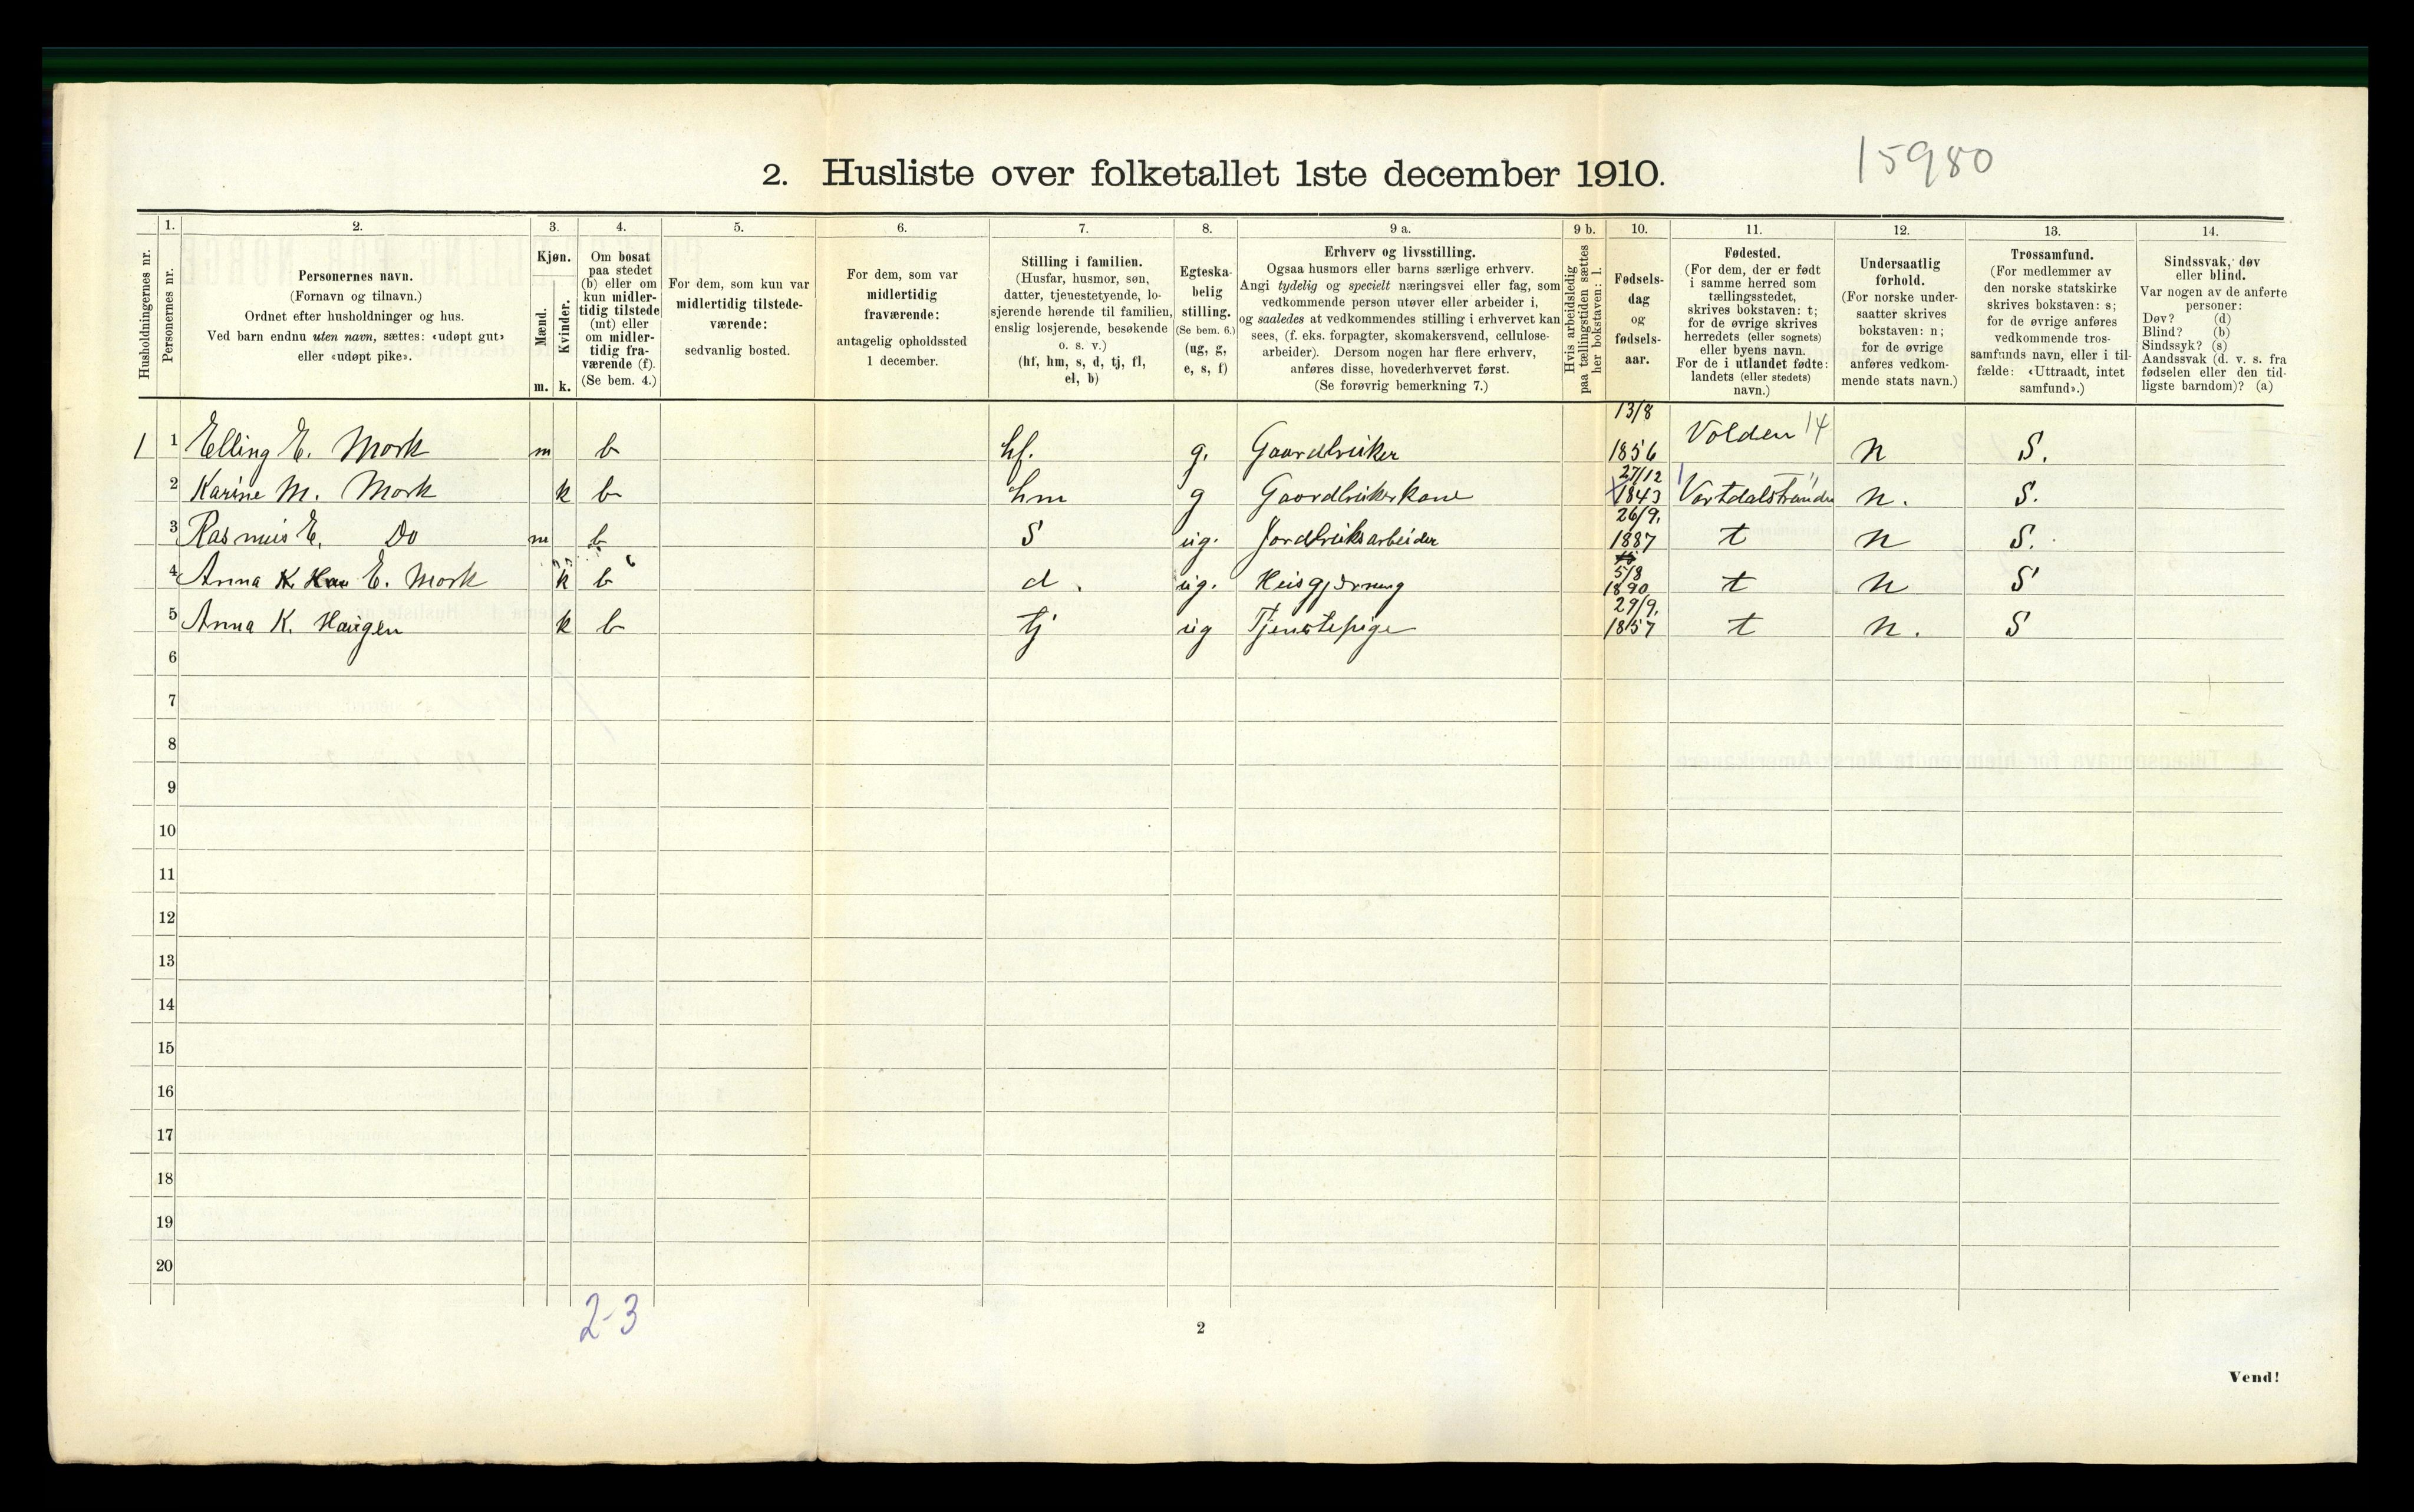 15980
2. Husliste over folketallet 1ste december 1910.
Husholdningernes nr.
1.
Personernes nr.
2.
Personernes navn.
(Fornavn og tilnavn.)
Ordnet efter husholdninger og hus.
Ved barn endnu uten navn, sættes: «udøpt gut»
eller «udøpt pike».
3.
Kjøn.
Mænd.
Kvinder.
m. k.
4.
Om bosat
paa stedet
(b) eller om
kun midler-
tidig tilstede
(mt) eller
om midler-
tidig fra-
værende (f).
(Se bem. 4.)
5.
For dem, som kun var
midlertidig tilstede-
værende:
sedvanlig bosted.
6.
For dem, som var
midlertidig
fraværende:
antagelig opholdssted
1 december.
7.
Stilling i familien.
(Husfar, husmor, søn,
datter, tjenestetyende, lo-
sjerende hørende til familien,
enslig losjerende, besøkende
o. s. v.)
(hf, hm, s, d, tj, fl,
el, b)
8.
Egteska-
belig
stilling.
(Se bem. 6.)
(ug, g,
e, s, f)
9 a.
Erhverv og livsstilling.
Ogsaa husmors eller barns særlige erhverv.
Angi tydelig og specielt næringsvei eller fag, som
vedkommende person utøver eller arbeider i,
og saaledes at vedkommendes stilling i erhvervet kan
sees, (f. eks. forpagter, skomakersvend, cellulose-
arbeider). Dersom nogen har flere erhverv,
anføres disse, hovederhvervet først.
(Se forøvrig bemerkning 7.)
9 b.
Hvis arbeidsledig
paa tællingstiden sættes
her bokstaven: l.
10.
Fødsels-
dag
og
fødsels-
aar.
11.
Fødested.
(For dem, der er født
i samme herred som
tællingsstedet,
skrives bokstaven: t;
for de øvrige skrives
herredets (eller sognets)
eller byens navn.
For de i utlandet fødte:
landets (eller stedets)
navn.)
12.
Undersaatlig
forhold.
(For norske under-
saatter skrives
bokstaven: n;
for de øvrige
anføres vedkom-
mende stats navn.)
13.
Trossamfund.
(For medlemmer av
den norske statskirke
skrives bokstaven: s;
for de øvrige anføres
vedkommende tros-
samfunds navn, eller i til-
fælde: «Uttraadt, intet
samfund».)
14.
Sindssvak, døv
eller blind.
Var nogen av de anførte
personer:
Døv? (d)
Blind? (b)
Sindssyk? (s)
Aandssvak (d. v. s. fra
fødselen eller den tid-
ligste barndom)? (a)
1 1 Elling E. Mork m b hf. g. Gaardbruker 13/8 1856 Volden 14 n S.
2 Karine M. Mork k b hm g Gaardbrukerkone 27/12 1843 Vartdalstranden n. S.
3 Rasmus E. Do m b S ug. Jordbruksarbeider 26/9. 1887 t n S.
4 Anna K. Hau E. Mork k b d. ug. Husgjerning 5/8 1890 t n S
5 Anna K. Haugen k b tj ug Tjenstepige 29/9. 1857 t n. S
6
7
8
9
10
11
12
13
14
15
16
17
18
19
20
2-3
2
Vend!